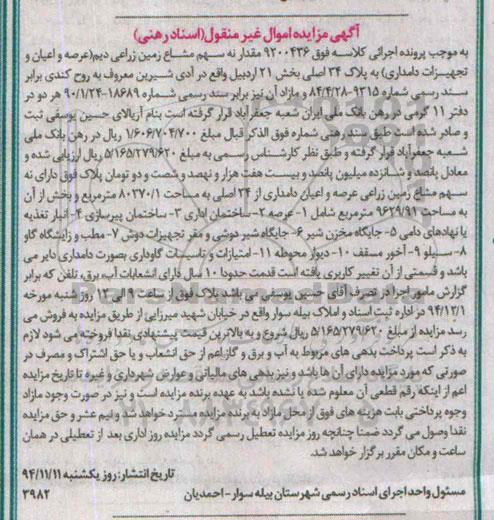 آگهی مزایده اموال غیر منقول(اسناد رهنی)
به موجب پرونده اجرائی کلاسه فوق ۹۲۰۰۴۳۶ مقدار نه سهم مشاع زمین زراعی دیم(عرصه و اعیان و
تجهیزات دامداری) به پلاک ۳۴ اصلی بخش ۲۱ اردبیل واقع در آدی شیرین معروف به روح کندی برابر
سند رسمی شماره ۹۳۱۵-۸۴/۴/۲۸ و مازاد آن نیز برابر سند رسمی شماره ۱۸۶۸۹-۹۰/۱/۲۴ هر دو در
دفتر ۱۱ گرمی در رهن بانک ملی ایران شعبه جعفرآباد قرار گرفته است بنام آریالای حسین یوسفی ثبت
و صادر شده است طبق سند رهنی شماره فوق الذکر قبال مبلغ ۱/۶۰۶/۷۰۴/۷۰۰ ریال در رهن بانک ملی
شعبه جعفرآباد قرار گرفته و طبق نظر کارشناس رسمی به مبلغ ۵/۱۶۵/۲۷۹/۶۲۰ ریال ارزیابی شده و
معادل پانصد و شانزده میلیون پانصد و بیست هفت هزار و نهصد و شصت و دو تومان پلاک فوق دارای نه
سهم مشاع زمین زراعی عرصه و اعیان دامداری از ۲۴ اصلی به مساحت ۸۰۳۷۰/۱ مترمربع و بخش از آن
به مساحت ۹۶۲۹/۹۱ مترمربع شامل ۱- عرصه ۲- ساختمان اداری ۳- ساختمان پیرسازی ۴- انبار تغذیه
یا نهادهای دامی ۵- جایگاه مخزن شیر ۶- جایگاه شیر دوشی و مقر تجهیزات دوش ۷- مطب و زایشگاه گاو
۸- سیلو ۹- آخور مسقف ۱۰- دیوار محوطه ۱۱- امتیازات و تاسیسات گاوداری بصورت دامداری دایر می
باشد و قسمتی از آن تغییر کاربری یافته است قدمت حدودا ۱۰ سال دارای انشعابات آب، برق، تلفن که برابر
گزارش مامور اجرا در تصرف آقای حسین یوسفی می باشد پلاک فوق از ساعت ۹ الی ۱۲ روز شنبه مورخه
۹۴/۱۲/۱ در اداره ثبت اسناد و املاک بیله سوار واقع در خیابان شهید میرزایی از طریق مزایده به فروش می
رسد مزایده از مبلغ ۵/۱۶۵/۲۷۹/۶۲۰ ریال شروع و به بالاترین قیمت پیشنهادی نقدا فروخته می شود لازم
به ذکر است پرداخت بدهی های مربوط به آب و برق و گاز اعم از حق انشعاب و یا حق اشتراک و مصرف در
صورتی که مورد مزایده دارای آن ها باشد و نیز بدهی های مالیاتی و عوارض شهرداری و غیره تا تاریخ مزایده
اعم از اینکه رقم قطعی آن معلوم شده یا نشده باشد به عهده برنده مزایده است و نیز در صورت وجود مازاد
وجوه پرداختی بابت هزینه های فوق از محل مازاد به برنده مزایده مسترد خواهد شد و نیم عشر و حق مزایده
نقدا وصول می گردد ضمنا چنانچه روز مزایده تعطیل رسمی گردد مزایده روز اداری بعد از تعطیلی در همان
ساعت و مکان مقرر برگزار خواهد شد.
تاریخ انتشار: روز یکشنبه ۹۴/۱۱/۱۱
مسئول واحد اجرای اسناد رسمی شهرستان بیله سوار- احمدیان ۳۹۸۲